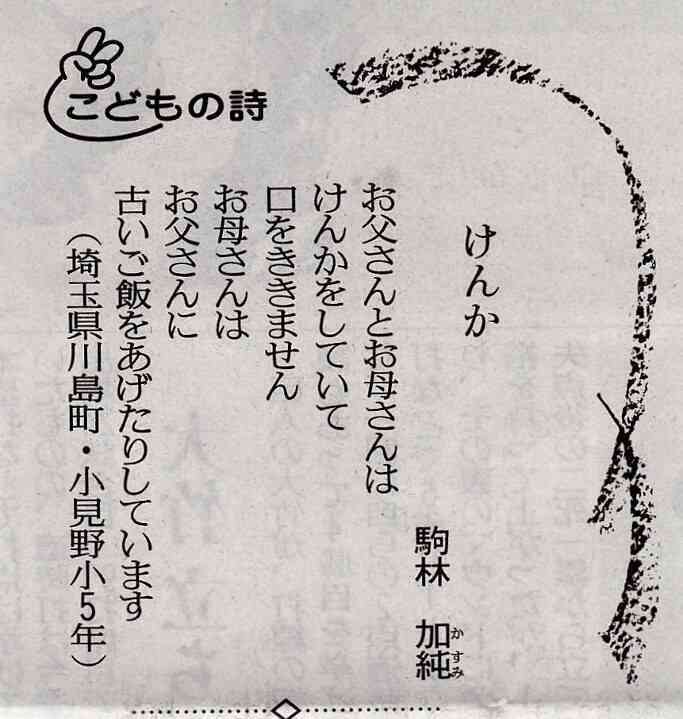 こどもの詩
けんか
駒林 加純
かすみ
お父さんとお母さんは
けんかをしていて
口をききません
お母さんは
お父さんに
古いご飯をあげたりしています
(埼玉県川島町・小見野小5年)